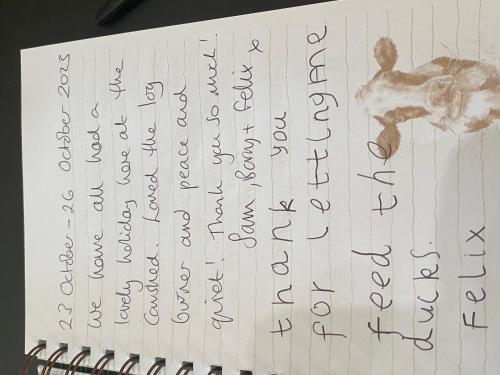 23 October - 26 October 2023
We have all had a
lovely holiday here at the
Cowshed. Loved the log
burner and peace and
quiet! Thank you so much!
Sam, Barry + Felix x
thank you
for letting me
feed the
ducks.
Felix